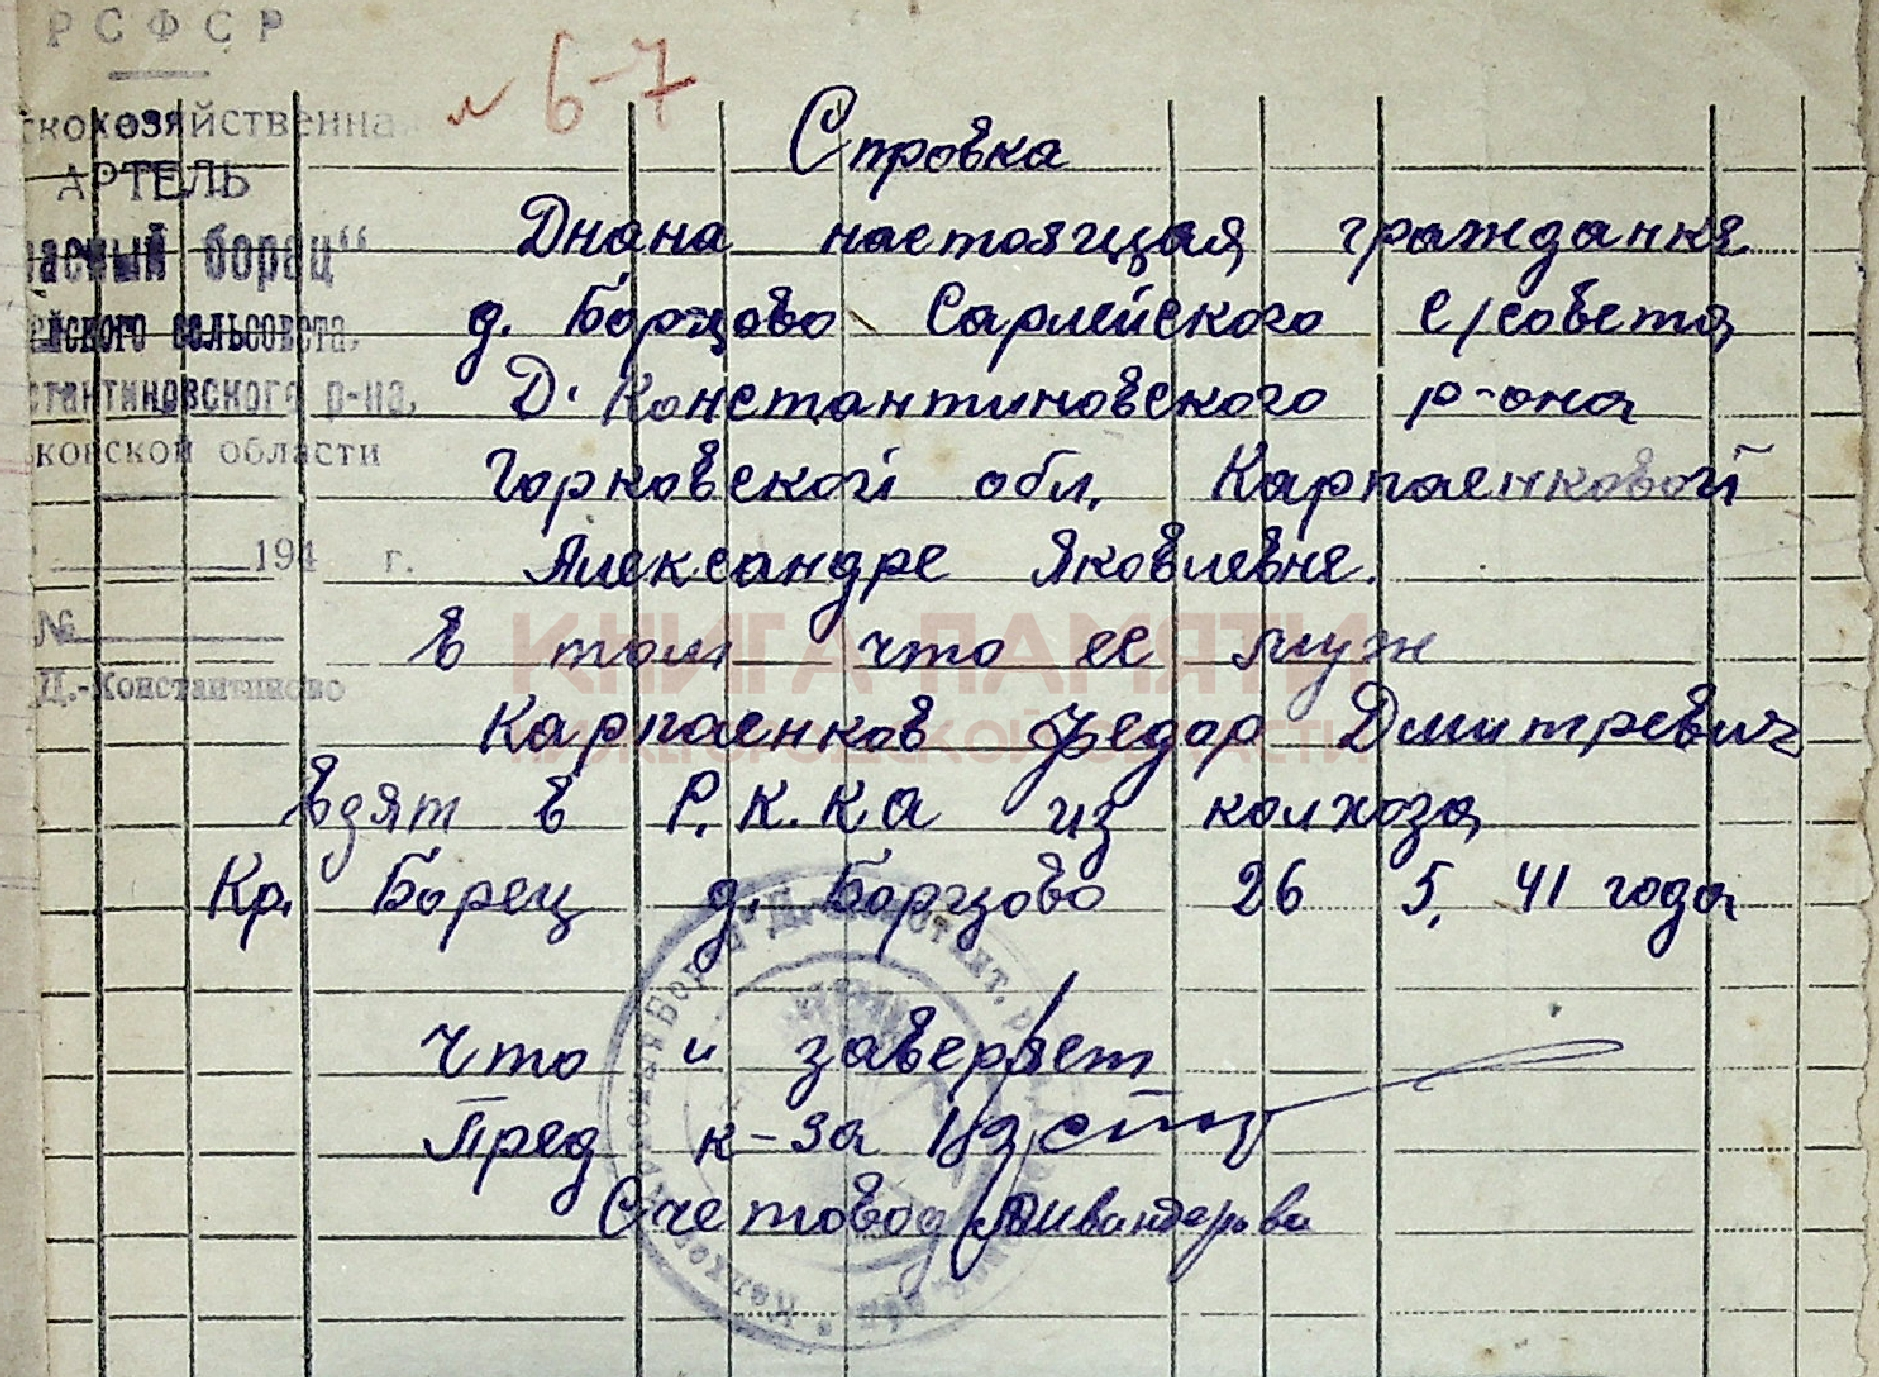 РСФСР
№ 6-7
скохозяйственная
АРТЕЛЬ
асный борец"
ейского сельсовета.
стантиновского р-на.
ковской области
194 г.
№
Д.-Константиново
Справка
Днана настоящая гражданке
д. Борцово Сарлейского с/совета
Д. Константиновского р-она
Горковской обл. Карпаенковой
Александре Яковлевне.
в том что ее муж
Карпаенков Федор Дмитревич
взят в Р.К.КА из колхоза
Кр. Борец д. Борцово 26 5. 41 года
Что и заверяет
Пред к-за
Счетовод
КНИГА ПАМЯТИ
НИЖЕГОРОДСКОЙ ОБЛАСТИ